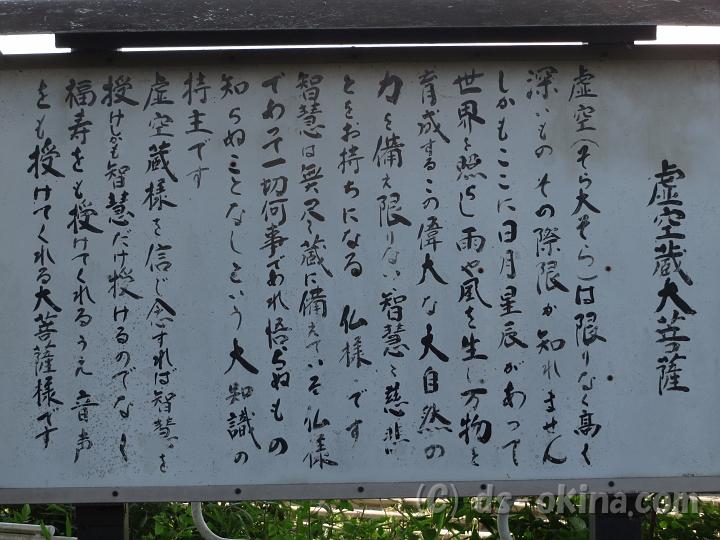 虚空蔵大菩薩
虚空(そら大そら)は限りなく高く
深いもの その際限が知れません
しかもここに日月星辰があって
世界を照らし雨や風を生し万物を
育成するこの偉大な大自然の
力を備え限りない智慧と慈悲
とをお持ちになる 仏様です
智慧は無尽蔵に備えている仏様
であって一切何事であれ悟らぬもの
知らぬことなしという大知識の
持主です
虚空蔵様を信じ念ずれば智慧を
授けしかも智慧だけ授けるのでなく
福寿をも授けてくれるうえ 音声
をも授けてくれる大菩薩様です
(C) ds-okina.com